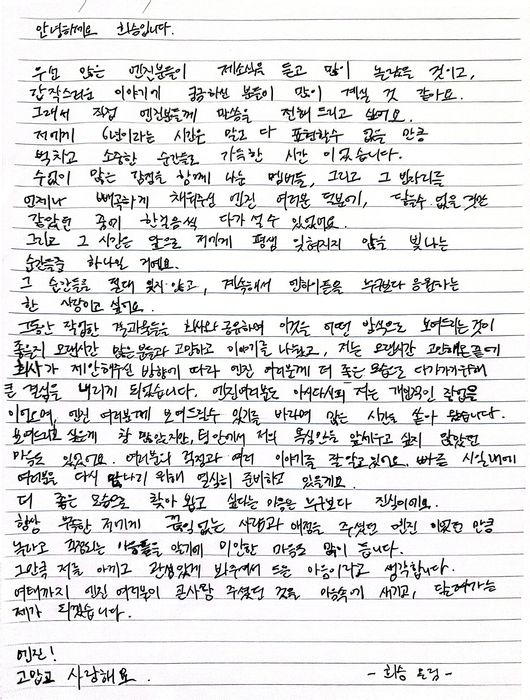 안녕하세요 희승입니다.
우선 많은 엔진분들이 제소식을 듣고 많이 놀랐을 것이고,
갑작스러운 이야기에 궁금하신 분들이 많이 계실 것 같아요.
그래서 직접 엔진분들께 말씀을 전해 드리고 싶어요.
저에게 6년이라는 시간은 말로 다 표현할수 없을 만큼
벅차고 소중한 순간들로 가득한 시간 이었습니다.
수없이 많은 감정을 함께 나눈 멤버들, 그리고 그 빈자리를
언제나 빼곡하게 채워주신 엔진 여러분 덕분에, 닿을수 없을 것만
같았던 꿈에 한걸음씩 다가설 수 있었어요.
그리고 그 시간은 앞으로 저에게 평생 잊혀지지 않을 빛나는
순간들중 하나일 거예요.
그 순간들을 절대 잊지 않고, 계속해서 엔하이픈을 누구보다 응원하는
한 사람이고 싶어요.
그동안 작업한 결과물들을 회사와 공유하며 이것을 어떤 방식으로 보여드리는것이
좋을지 오랜시간 많은 분들과 고민하고 이야기를 나눴고, 저는 오랜시간 고민해온 끝에
회사가 제안해주신 방향에 따라 엔진 여러분께 더 좋은 모습으로 다가가기위해
큰 결심을 내리게 되었습니다. 엔진여러분도 아시다시피 저는 개인적인 작업을
이어오며, 엔진 여러분께 보여드릴수 있기를 바라며 많은 시간을 쏟아 왔습니다.
보여드리고 싶은게 참 많았지만, 팀 안에서 저의 욕심만을 앞세우고 싶지 않았던
마음도 있었어요. 여러분의 걱정과 여러 이야기를 잘 알고있어요. 빠른 시일내에
여러분을 다시 만나기 위해 열심히 준비하고 있을게요.
더 좋은 모습으로 찾아 뵙고 싶다는 마음은 누구보다 진심이에요.
항상 부족한 저에게 끊임 없는 사랑과 애정을 주셨던 엔진 이였던 만큼
놀라고 걱정되는 마음들을 알기에 미안한 마음도 많이 듭니다.
그만큼 저를 아끼고 관심있게 봐주셔서 드는 마음이라고 생각합니다.
여태까지 엔진 여러분이 큰사랑 주셨던 것을 마음속에 새기고, 달려가는
제가 되겠습니다.
엔진!
고맙고 사랑해요.
- 희승 드림 -